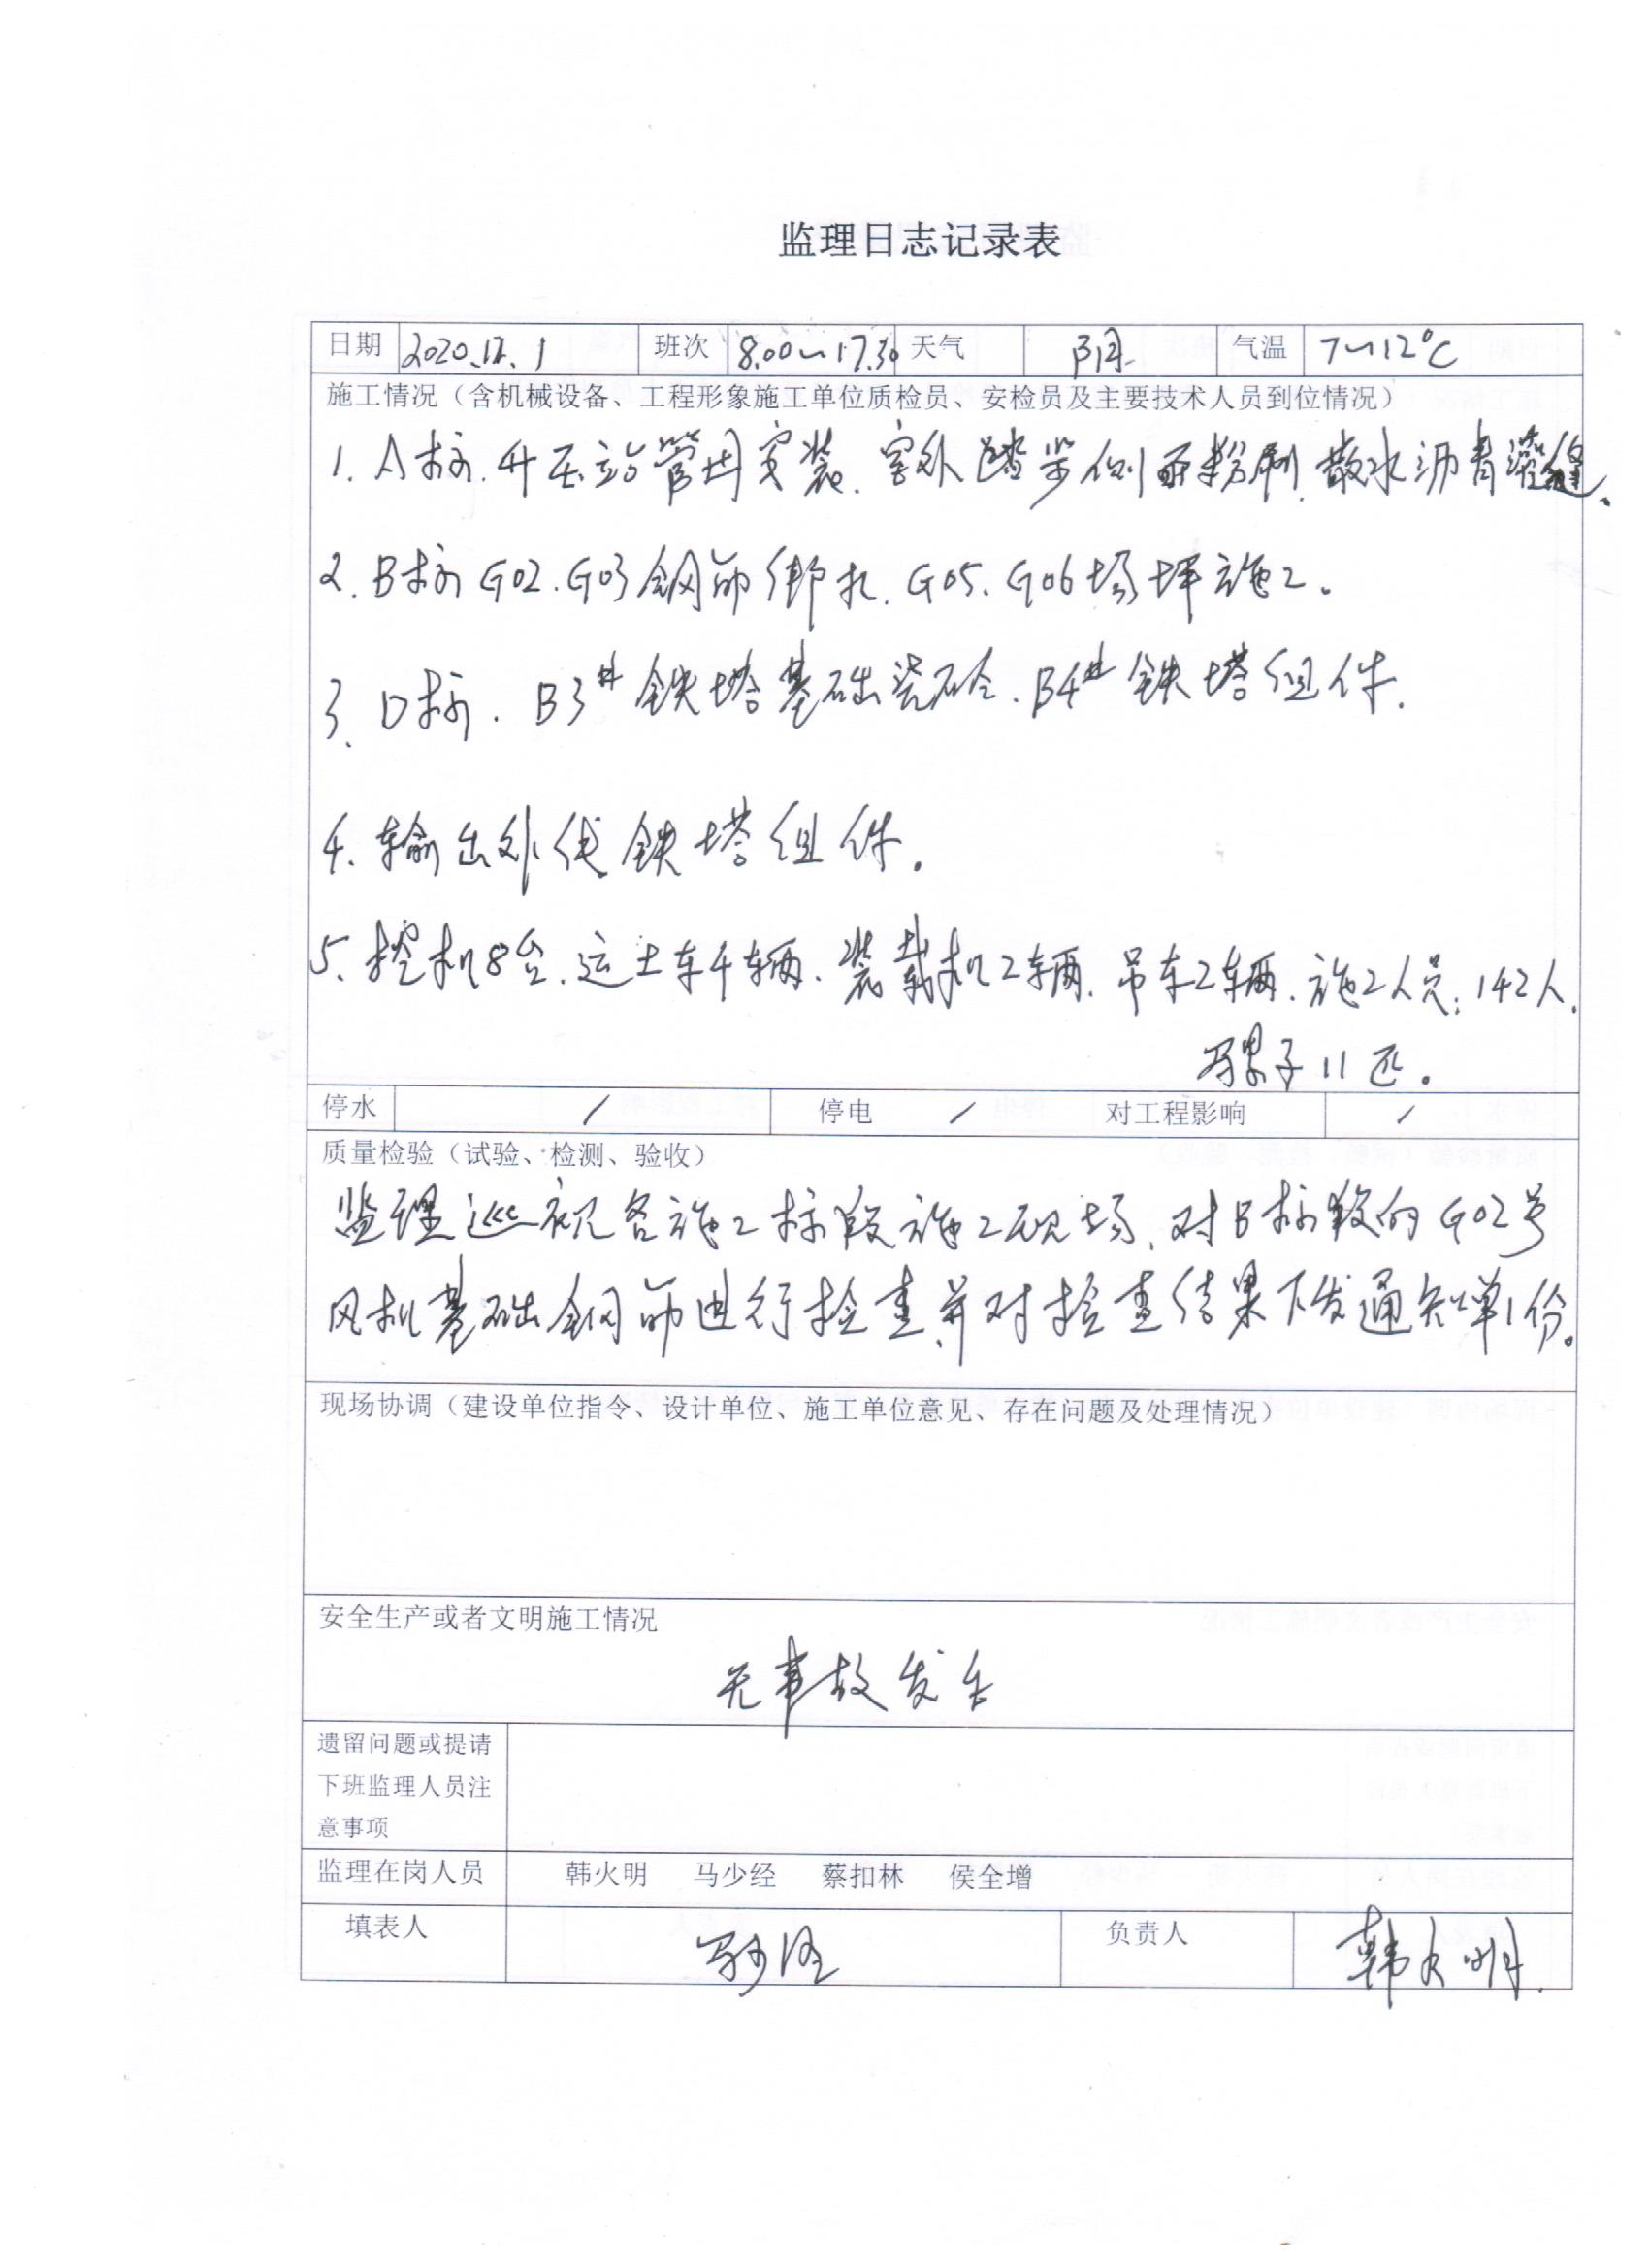 监理日志记录表
日期 2020.12.1 班次 8.00~17.30 天气 阴 气温 7~12℃
施工情况（含机械设备、工程形象施工单位质检员、安检员及主要技术人员到位情况）
1. A标.升压站管母安装.室外踏步侧面粉刷.散水沥青灌缝.
2. B标G02.G03钢筋绑扎.G05.G06场坪施工.
3. D标. B3#铁塔基础瓷砼.B4#铁塔组件.
4. 输出外线铁塔组件.
5. 挖机8台.运土车4辆.装载机2辆.吊车2辆.施工人员:142人.
马累子11匹.
停水 / 停电 / 对工程影响 /
质量检验（试验、检测、验收）
监理巡视各施工标段施工现场.对B标段的G02号
风机基础钢筋进行检查并对检查结果下发通知单1份。
现场协调（建设单位指令、设计单位、施工单位意见、存在问题及处理情况）
安全生产或者文明施工情况
无事故发生
遗留问题或提请
下班监理人员注
意事项
监理在岗人员 韩火明 马少经 蔡扣林 侯全增
填表人 马少经 负责人 韩火明.